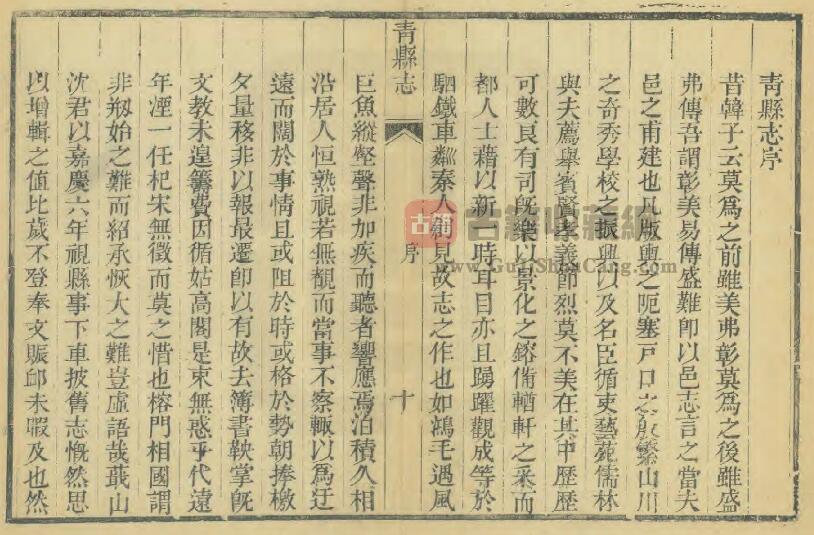 青縣志序
昔韓子云莫爲之前雖美弗彰莫爲之後雖盛
弗傳吾謂彰美易傳盛難卽以邑志言之當夫
邑之甫建也凡版輿之阨塞戸口之殷繁山川
之奇秀學校之振興以及名臣循吏藝苑儒林
與夫薦舉賓賢孝義節烈莫不美在其中歷歷
可數良有司旣樂以景化之鎔備輶軒之采而
都人士藉以新一時耳目亦且踴躍觀成等於
駟鐵車鄰秦人創見故志之作也如鴻毛遇風
青縣志
序
十
巨魚縱壑聲非加疾而聽者響應焉洎積久相
沿居人恒熟視若無覩而當事不察輒以爲迂
遠而闊於事情且或阻於時或格於勢朝捧檄
夕量移非以報最遷卽以有故去簿書鞅掌旣
文敎未遑籌費因循姑高閣是束無惑乎代遠
年湮一任杞宋無徵而莫之惜也榕門相國謂
非剏始之難而紹承恢大之難豈虛語哉蕺山
沈君以嘉慶六年視縣事下車披舊志慨然思
以增輯之値比歲不登奉文賑邱未暇及也然
古籍收藏網
www.GuJiShouCang.com
古籍